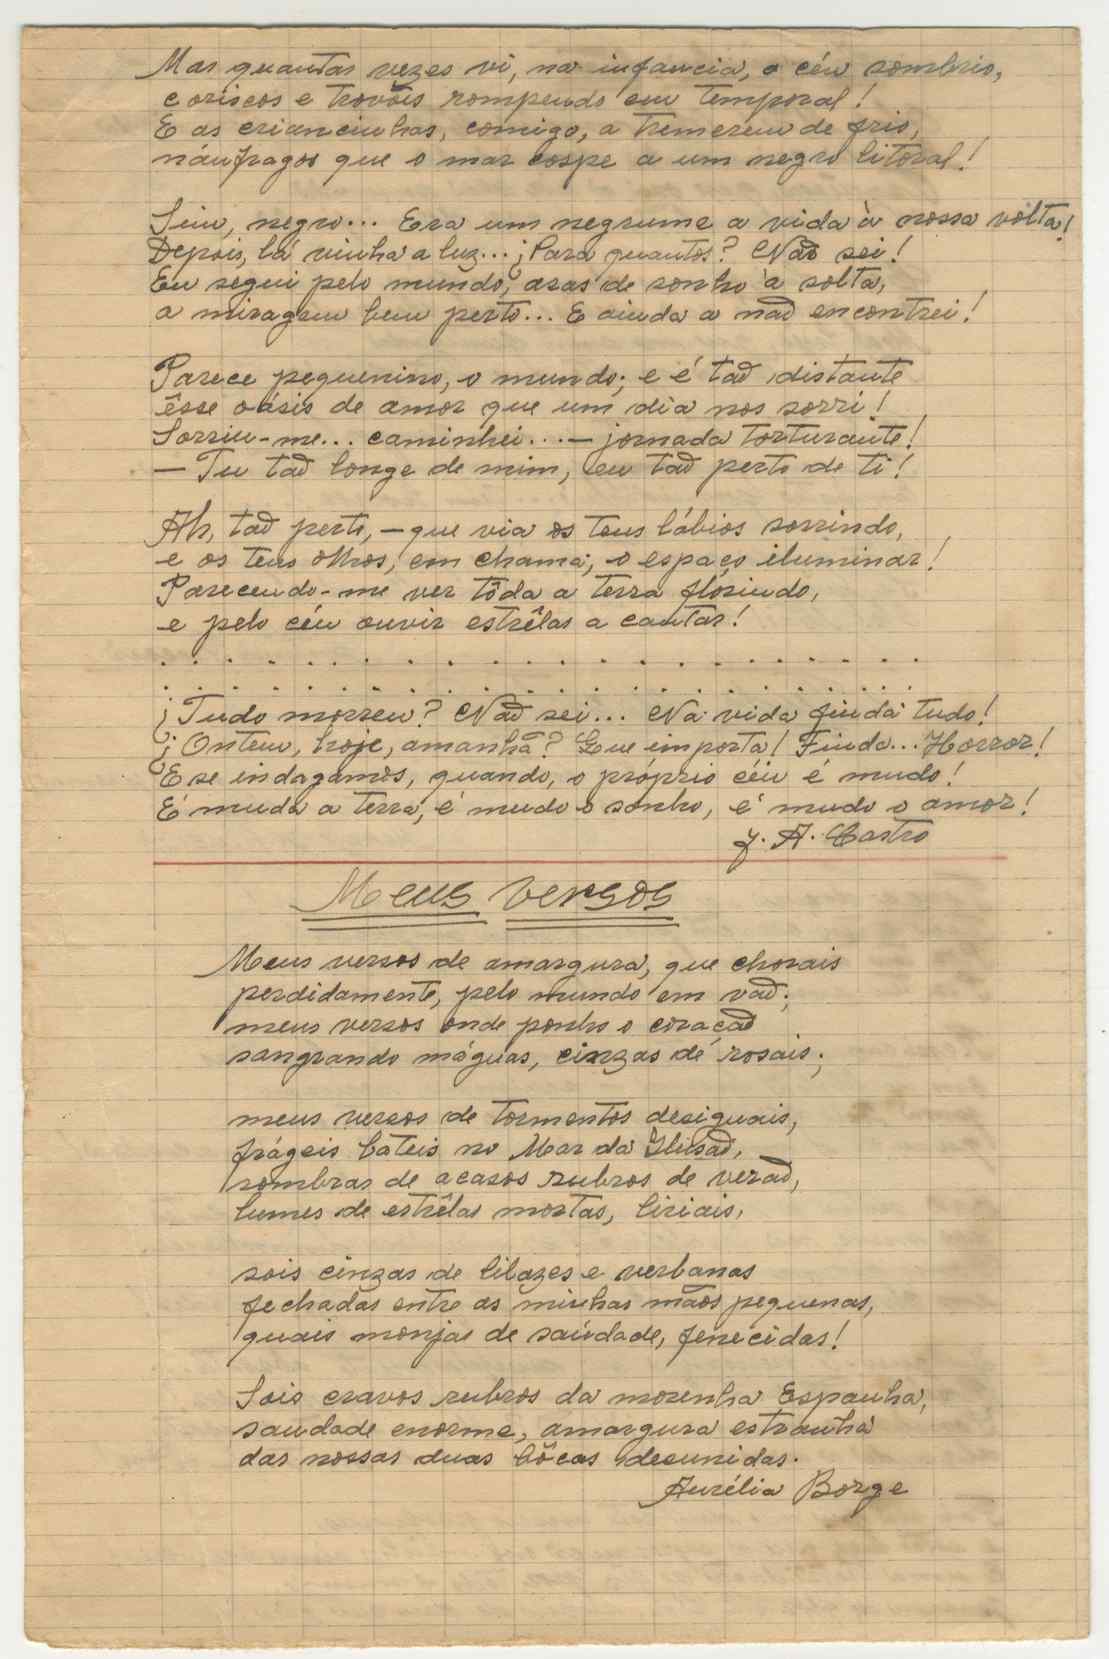 Mas quantas vezes vi, na infancia, o céu sombrio,
coriscos e trovões rompendo em temporal!
E as criancinhas, comigo, a tremerem de frio,
náufragos que o mar cospe a um negro litoral!
Sim, negro... Era um negrume a vida à nossa volta!
Depois, lá vinha a luz... ¿Para quantos? Não sei!
Eu segui pelo mundo, asas de sonho à solta,
a miragem bem perto... E ainda a não encontrei!
Parece pequenino, o mundo; e é tão distante
êsse oásis de amor que um dia nos sorri!
Sorriu-me... caminhei... — jornada torturante!
— Tu tão longe de mim, eu tão perto de ti!
Ah, tão perto, — que via os teus lábios sorrindo,
e os teus olhos, em chama, o espaço iluminar!
Parecendo-me ver tôda a terra florindo,
e pelo céu ouvir estrêlas a cantar!
. . . . . . . . . . . . . . . . . . . . . . . .
. . . . . . . . . . . . . . . . . . . . . . . .
¿Tudo morreu? Não sei... Na vida finda tudo!
¿Ontem, hoje, amanhã? Que importa! Finda... Horror!
E se indagamos, quando, o próprio céu é mudo!
É muda a terra, é mudo o sonho, é mudo o amor!
J. A. Castro
Meus versos
Meus versos de amargura, que chorais
perdidamente, pelo mundo em vão;
meus versos onde ponho o coração
sangrando máguas, cinzas de rosais;
meus versos de tormentos desiguais,
frágeis batéis no Mar da Ilusão,
sombras de acasos rubros de verão,
lumes de estrêlas mortas, liriais,
sois cinzas de lilazes e verbanas
fechadas entre as minhas mãos pequenas,
quais monjas de saúdade, fenecidas!
Sois cravos rubros da morenha Espanha,
saudade enorme, amargura estranha
das nossas duas bôcas desunidas.
Aurélia Borge